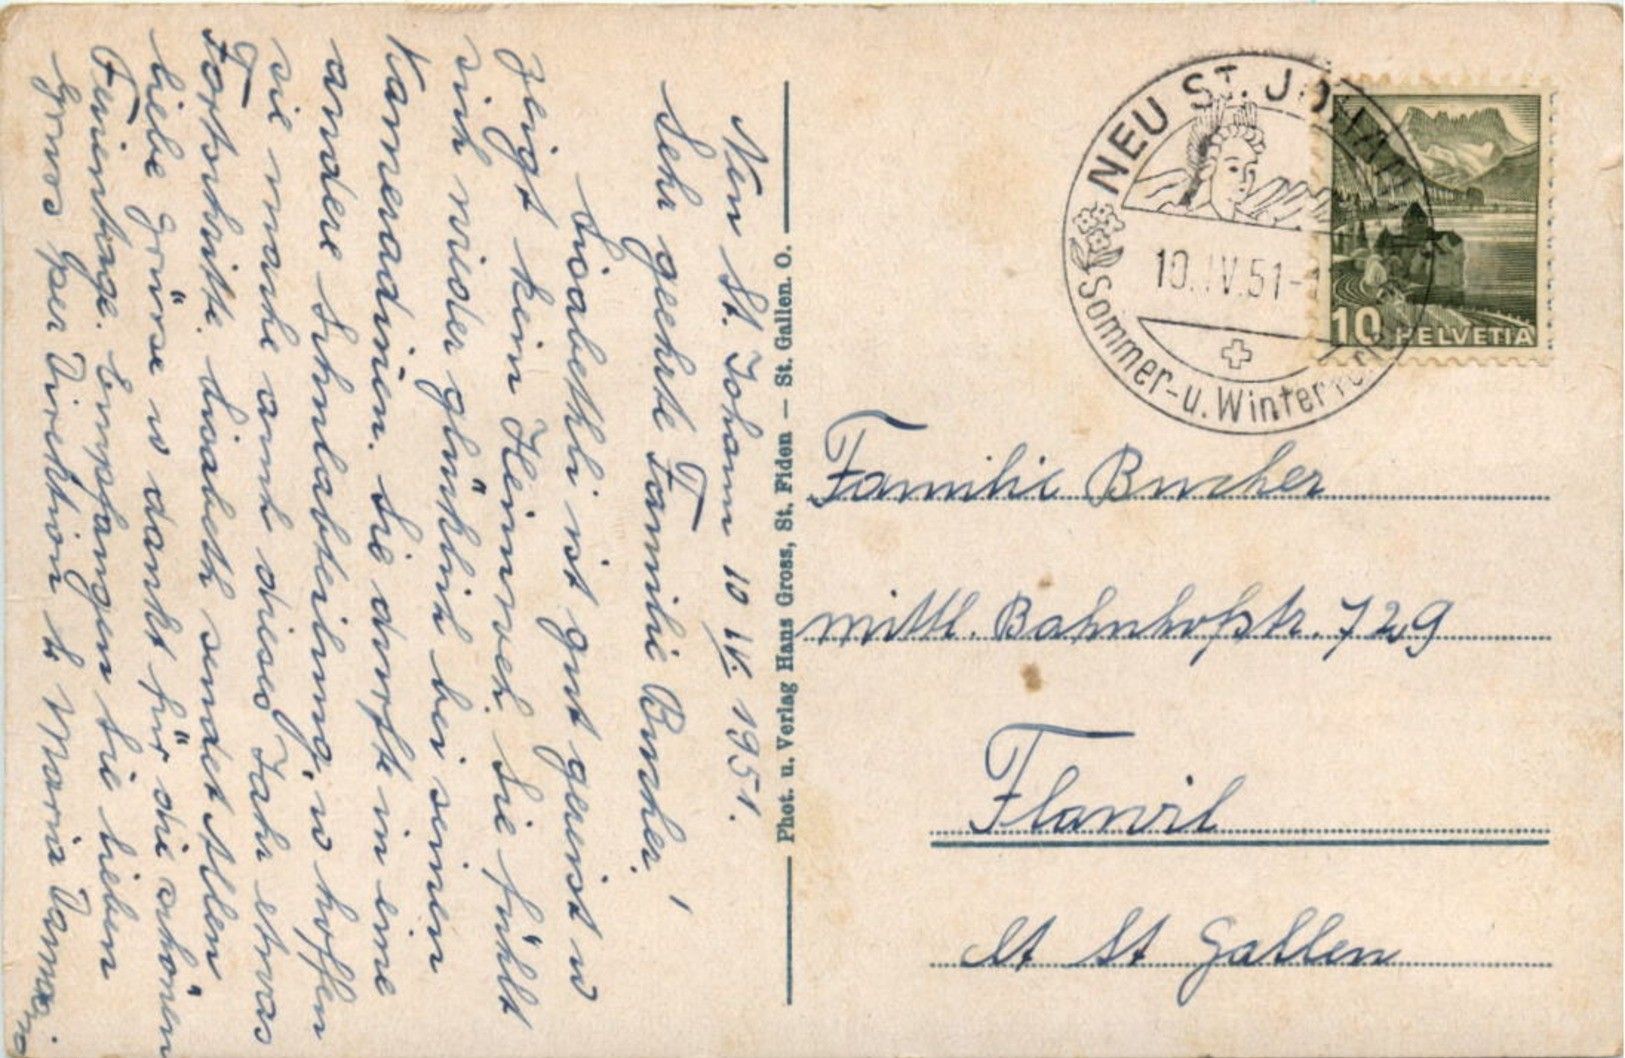 Neu St. Johann 10 IV. 1951.
Sehr geehrte Familie Bucher!
Lisabethli ist gut gereist u
zeigt kein Heimweh. Sie fühlt
sich wieder glücklich bei seinen
Kameradinen. Sie durfte in eine
andere Schulabteilung, u hoffen
sie mache auch dieses Jahr etwas
Fortschritte. Lisabeth sendet Allen
liebe Grüsse u dankt für die schönen
Ferientage. Empfangen Sie lieben
Gruss per Direktion Sr Maria
Phot. u. Verlag Hans Gross, St. Fiden — St. Gallen. O.
NEU ST. JOHANN
10.IV.51-1
Sommer- u. Winter
10 HELVETIA
Familie Bucher
mittl. Bahnhofstr. 729
Flawil
Kt St Gallen